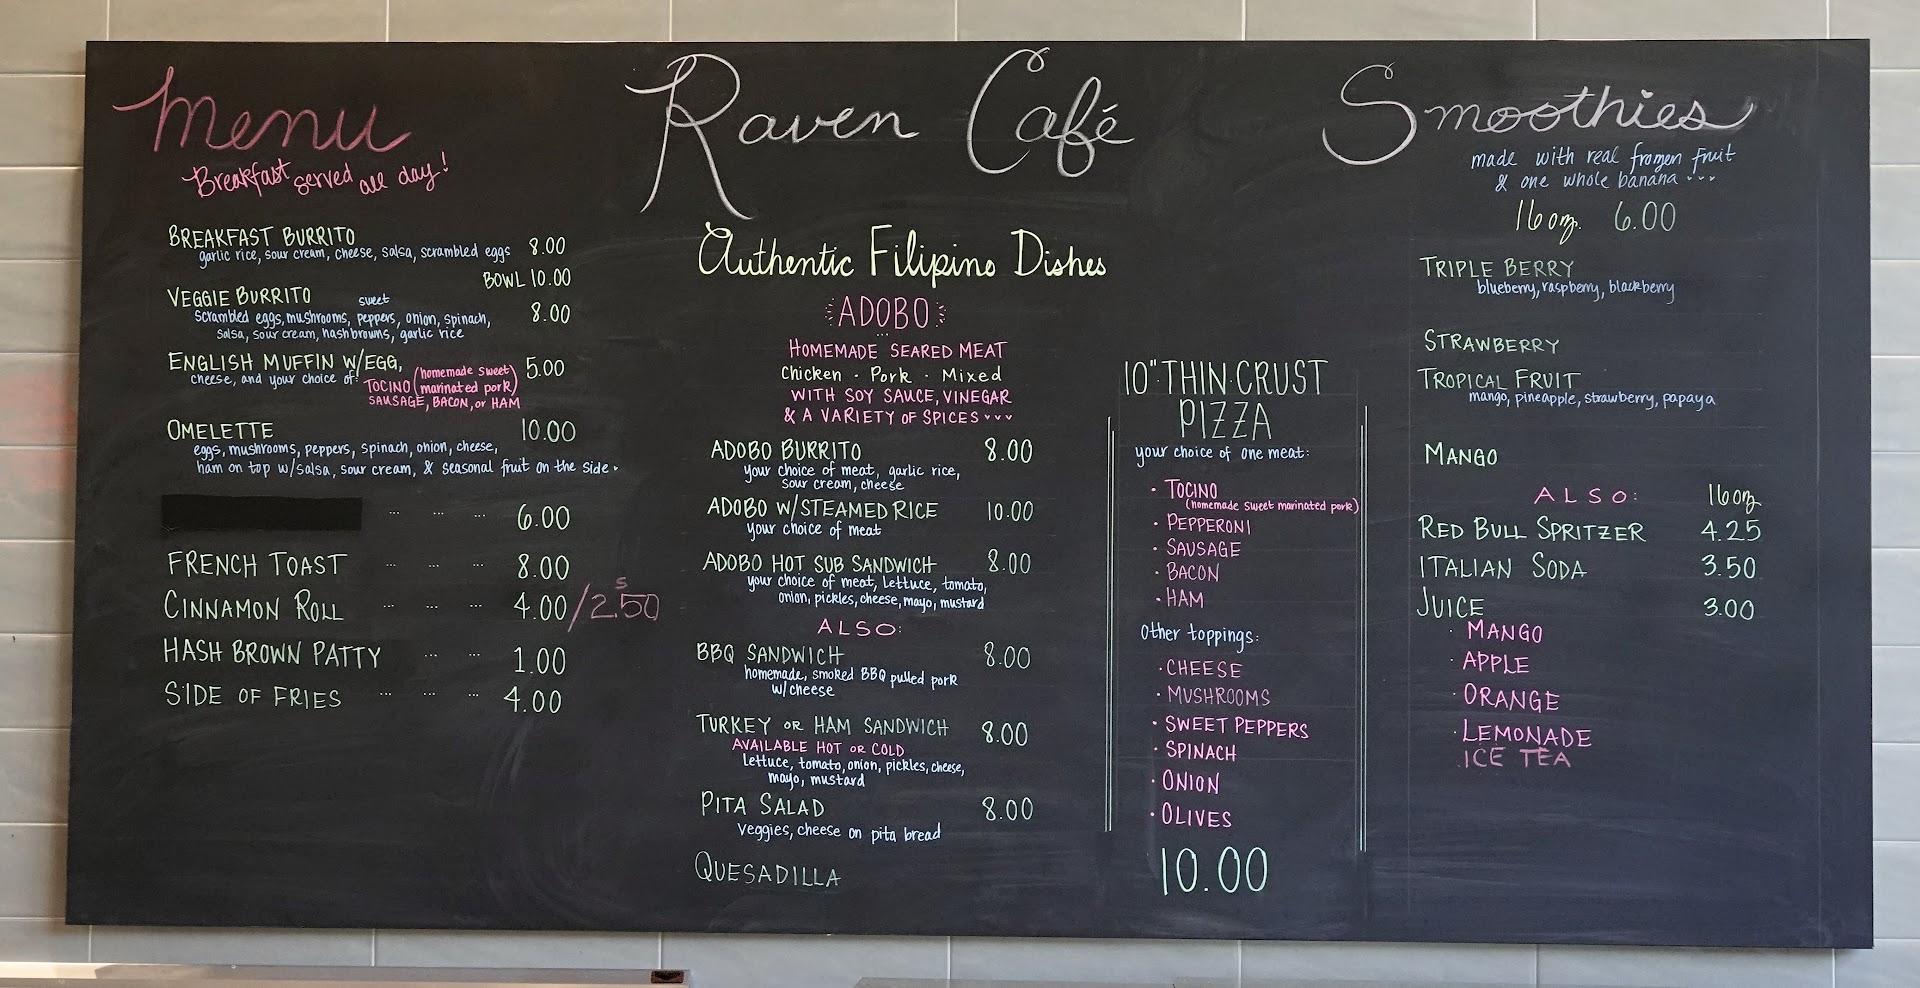 Menu
Breakfast served all day!
BREAKFAST BURRITO 8.00
garlic rice, sour cream, cheese, salsa, scrambled eggs
BOWL 10.00
VEGGIE BURRITO 8.00
sweet
scrambled eggs, mushrooms, peppers, onion, spinach,
salsa, sour cream, hashbrowns, garlic rice
ENGLISH MUFFIN W/EGG, 5.00
cheese, and your choice of:
TOCINO (homemade sweet marinated pork)
SAUSAGE, BACON, or HAM
OMELETTE 10.00
eggs, mushrooms, peppers, spinach, onion, cheese,
ham on top w/salsa, sour cream, & seasonal fruit on the side.
... ... ... 6.00
FRENCH TOAST ... ... ... 8.00
CINNAMON ROLL ... ... ... 4.00/2.50
S
HASH BROWN PATTY ... ... 1.00
SIDE OF FRIES ... ... ... 4.00
Raven Café
Authentic Filipino Dishes
ADOBO
HOMEMADE SEARED MEAT
Chicken · Pork · Mixed
WITH SOY SAUCE, VINEGAR
& A VARIETY OF SPICES
ADOBO BURRITO 8.00
your choice of meat, garlic rice,
sour cream, cheese
ADOBO W/STEAMED RICE 10.00
your choice of meat
ADOBO HOT SUB SANDWICH 8.00
your choice of meat, lettuce, tomato,
onion, pickles, cheese, mayo, mustard
ALSO:
BBQ SANDWICH 8.00
homemade, smoked BBQ pulled pork
w/cheese
TURKEY or HAM SANDWICH 8.00
AVAILABLE HOT or COLD
lettuce, tomato, onion, pickles, cheese,
mayo, mustard
PITA SALAD 8.00
veggies, cheese on pita bread
QUESADILLA
10" THIN CRUST
PIZZA
your choice of one meat:
· TOCINO
(homemade sweet marinated pork)
· PEPPERONI
· SAUSAGE
· BACON
· HAM
Other toppings:
· CHEESE
· MUSHROOMS
· SWEET PEPPERS
· SPINACH
· ONION
· OLIVES
10.00
Smoothies
made with real frozen fruit
& one whole banana
16 oz. 6.00
TRIPLE BERRY
blueberry, raspberry, blackberry
STRAWBERRY
TROPICAL FRUIT
mango, pineapple, strawberry, papaya
MANGO
ALSO: 16 oz
RED BULL SPRITZER 4.25
ITALIAN SODA 3.50
JUICE 3.00
· MANGO
· APPLE
· ORANGE
· LEMONADE
· ICE TEA